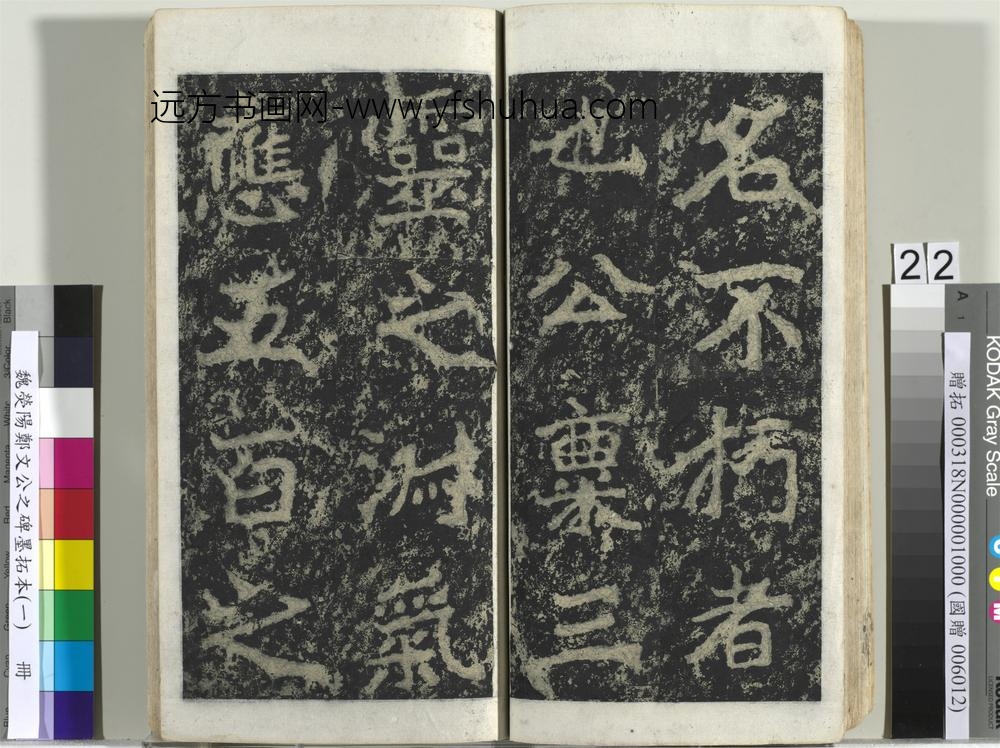 远方书画网-www.yfshuhua.com
名不朽者
也公稟三
靈之淑氣
應五百之
22
魏滎陽鄭文公之碑墨拓本(一) 冊
贈拓 000318N000001000 (國贈 006012)
KODAK Gray Scale
A 1
Black
3/Color
White
Magenta